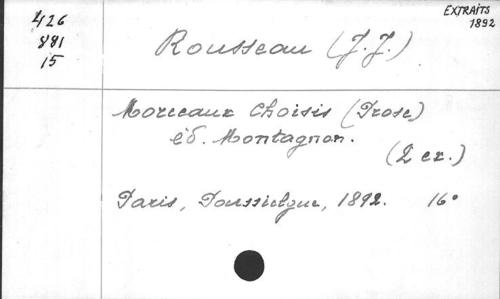 EXTRAITS
1892
426
881
15
Rousseau (J.J.)
Morceaux Choisis (Prose)
éd. Montagnon.
(2 ex.)
Paris, Poussielgue, 1892. 16°